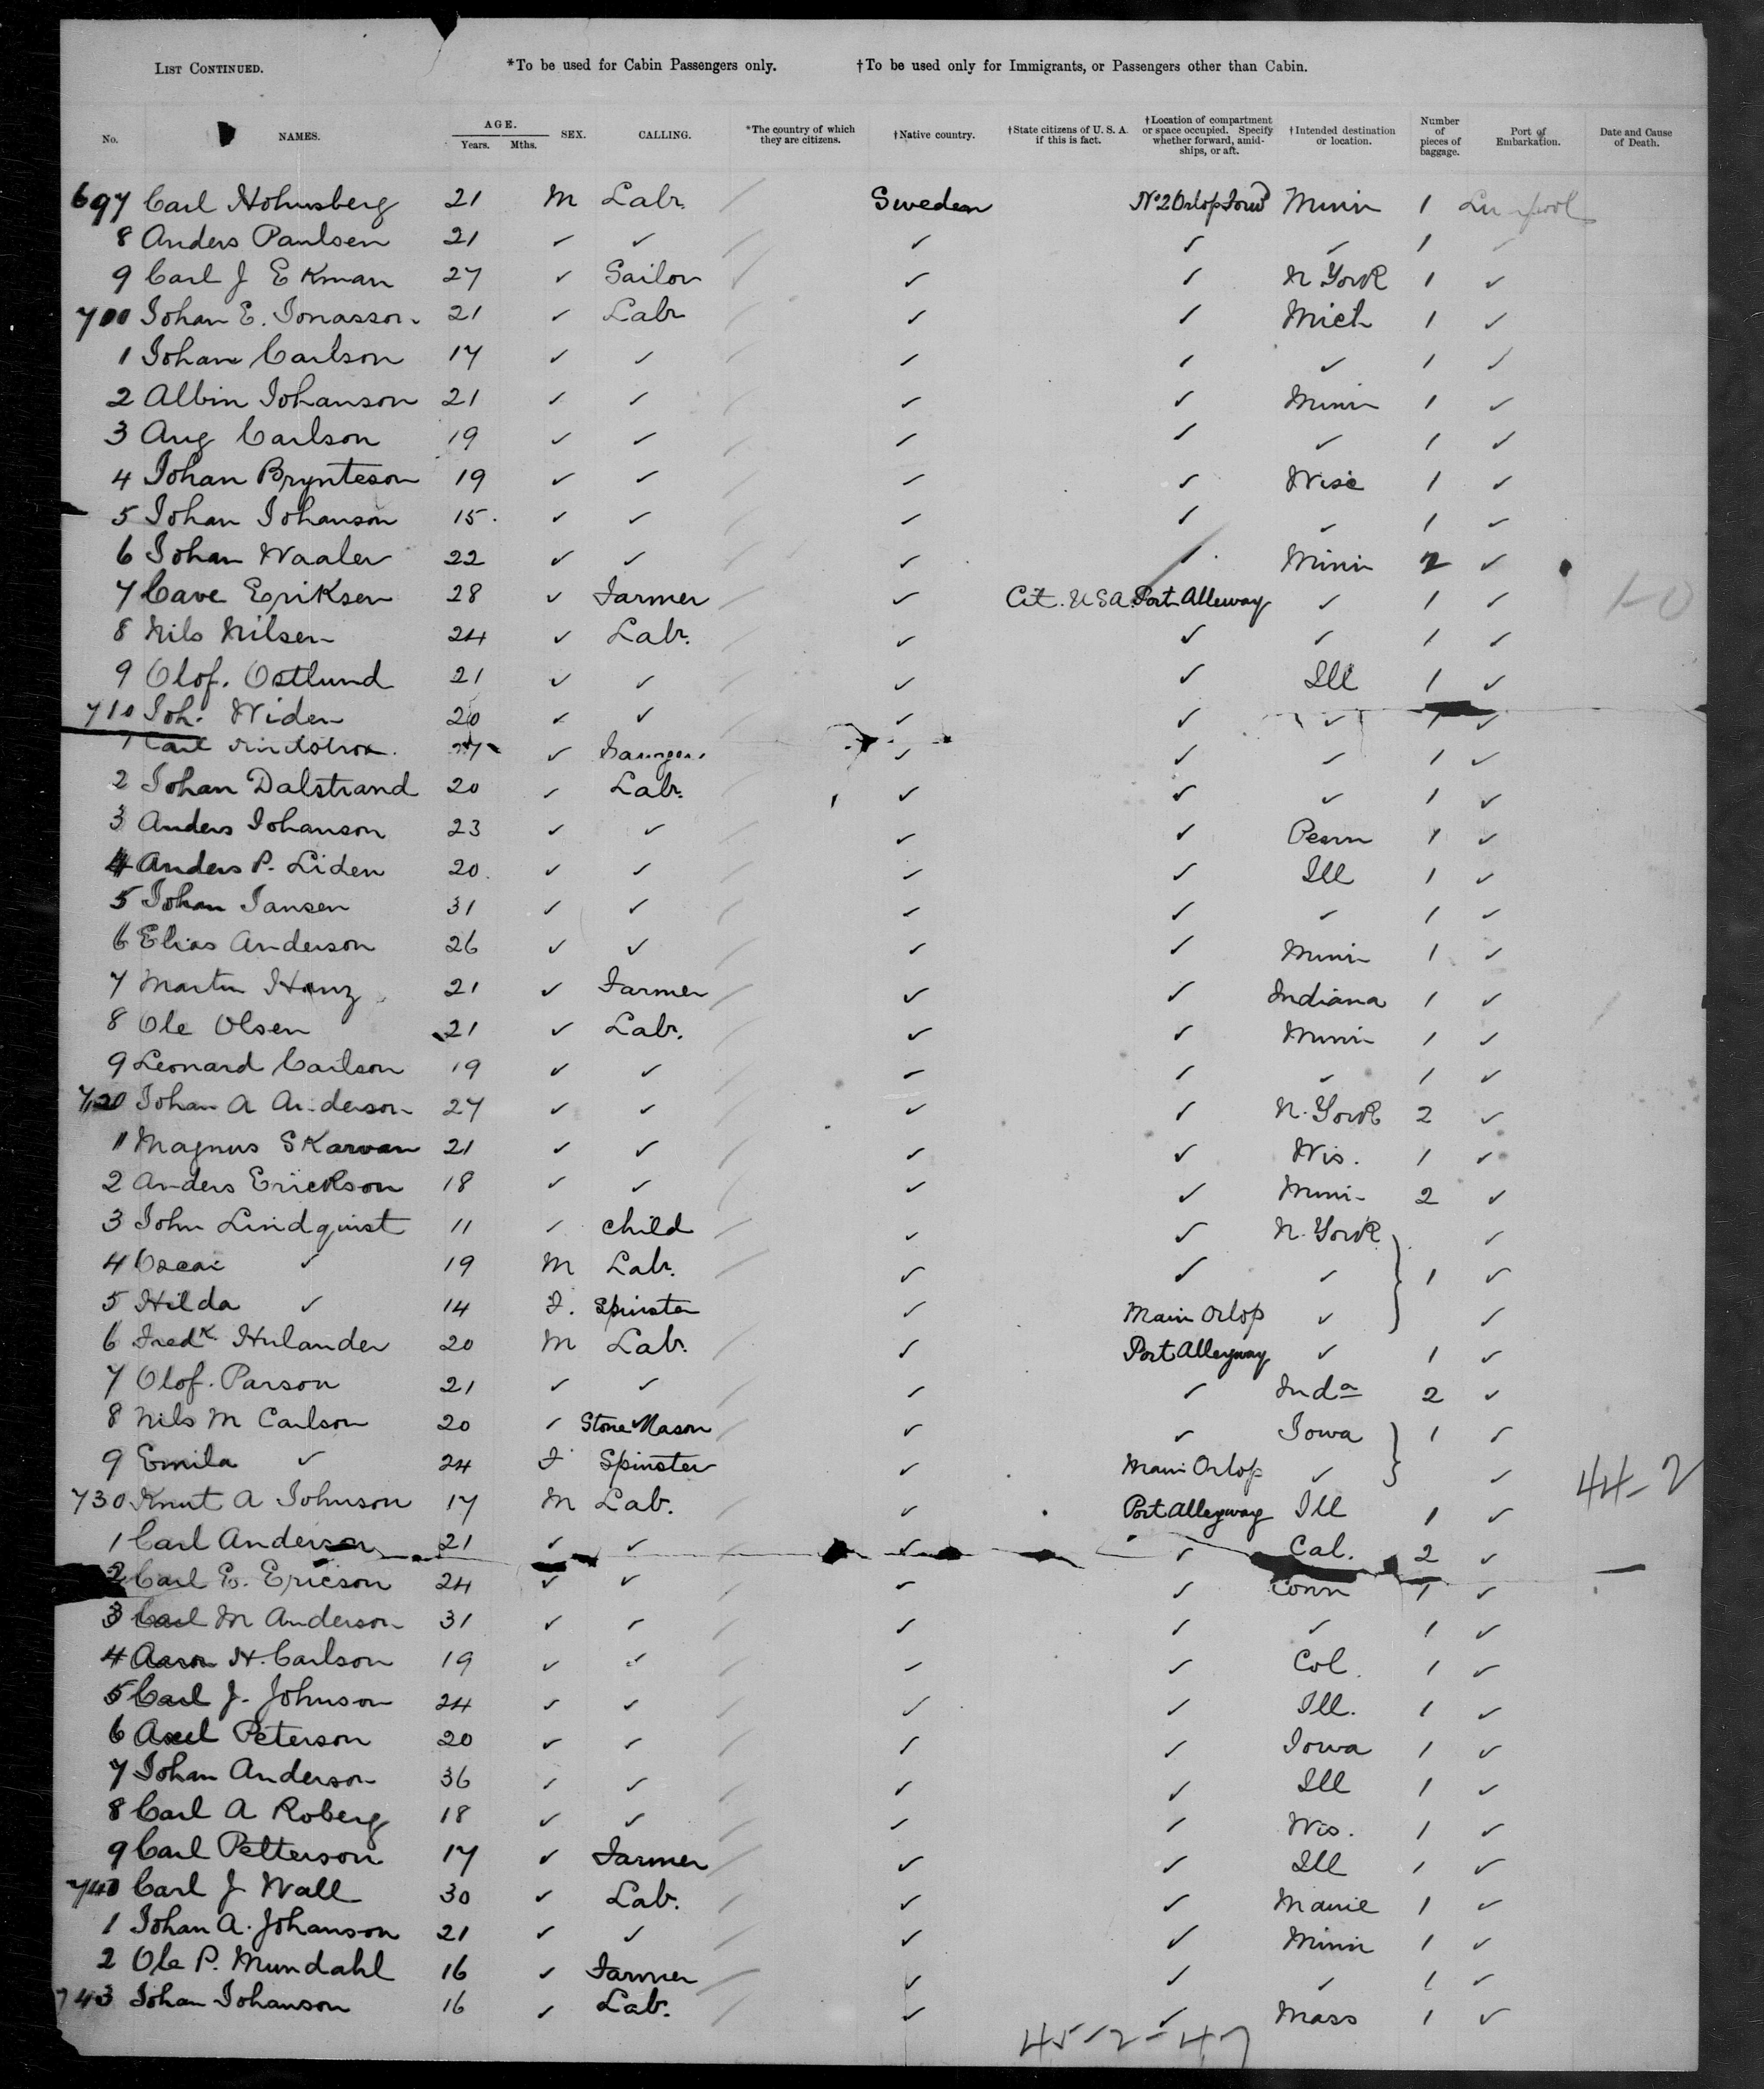 LIST CONTINUED. *To be used for Cabin Passengers only. †To be used only for Immigrants, or Passengers other than Cabin.
No. NAMES. AGE. Years. Mths. SEX. CALLING. *The country of which they are citizens. †Native country. †State citizens of U. S. A. if this is fact. †Location of compartment or space occupied. Specify whether forward, amidships, or aft. †Intended destination or location. Number of pieces of baggage. Port of Embarkation. Date and Cause of Death.
697 Carl Holmsberg 21 M Labr. / Sweden No 2 Orlop Forwd Minn 1 Liverpool
8 Anders Paulsen 21 ✓ ✓ / ✓ ✓ ✓ 1 ✓
9 Carl J Ekman 27 ✓ Sailor / ✓ ✓ N York 1 ✓
700 Johan E. Jonasson 21 ✓ Labr / ✓ ✓ Mich 1 ✓
1 Johan Carlson 17 ✓ ✓ / ✓ ✓ ✓ 1 ✓
2 Albin Johanson 21 ✓ ✓ / ✓ ✓ Minn 1 ✓
3 Aug Carlson 19 ✓ ✓ / ✓ ✓ ✓ 1 ✓
4 Johan Brynteson 19 ✓ ✓ / ✓ ✓ Wisc 1 ✓
5 Johan Johanson 15. ✓ ✓ / ✓ ✓ ✓ 1 ✓
6 Johan Waaler 22 ✓ ✓ / ✓ ✓ Minn 2 ✓
7 Cave Eriksen 28 ✓ Farmer / ✓ Cit. USA. Port Alleway ✓ 1 ✓ 1-0
8 Nils Nilsen 24 ✓ Labr. / ✓ ✓ ✓ 1 ✓
9 Olof. Ostlund 21 ✓ ✓ / ✓ ✓ Ill 1 ✓
710 Joh. Widen 20 ✓ ✓ / ✓ ✓ ✓ 1 ✓
1 Carl 27 ✓ ✓ ✓ ✓ 1 ✓
2 Johan Dalstrand 20 ✓ Labr. ✓ ✓ ✓ 1 ✓
3 Anders Johanson 23 ✓ ✓ / ✓ ✓ Penn 1 ✓
4 Anders P. Liden 20. ✓ ✓ / ✓ ✓ Ill 1 ✓
5 Johan Jansen 31 ✓ ✓ / ✓ ✓ ✓ 1 ✓
6 Elias Anderson 26 ✓ ✓ / ✓ ✓ Minn 1 ✓
7 Martin 21 ✓ Farmer / ✓ ✓ Indiana 1 ✓
8 Ole Olsen 21 ✓ Labr. / ✓ ✓ Minn 1 ✓
9 Leonard Carlson 19 ✓ ✓ / ✓ ✓ ✓ 1 ✓
720 Johan A Anderson 27 ✓ ✓ / ✓ ✓ N. York 2 ✓
1 Magnus Skarvan 21 ✓ ✓ / ✓ ✓ Wis. 1 ✓
2 Anders Erickson 18 ✓ ✓ / ✓ ✓ Minn 2 ✓
3 John Lindquist 11 ✓ child / ✓ ✓ N. York ✓
4 Oscar ✓ 19 M Labr. / ✓ ✓ ✓ 1 ✓
5 Hilda ✓ 14 F. Spinster ✓ Main Orlop ✓ ✓
6 Fredk Hulander 20 M Labr. / ✓ Port Alleyway ✓ 1 ✓
7 Olof. Parson 21 ✓ ✓ / ✓ ✓ Inda 2 ✓
8 Nils M Carlson 20 ✓ Stone Mason / ✓ ✓ Iowa 1 ✓
9 Emila ✓ 24 F Spinster ✓ Main Orlop ✓ ✓ 44-2
730 Knut A Johnson 17 M Lab. / ✓ Port Alleyway Ill 1 ✓
1 Carl Anderson 21 ✓ ✓ / ✓ ✓ Cal. 2 ✓
2 Carl E. Ericson 24 ✓ ✓ / ✓ ✓ Conn 1 ✓
3 Carl M Anderson 31 ✓ ✓ / ✓ ✓ ✓ 1 ✓
4 Aaron H. Carlson 19 ✓ ✓ / ✓ ✓ Col. 1 ✓
5 Carl J. Johnson 24 ✓ ✓ / ✓ ✓ Ill. 1 ✓
6 Axel Peterson 20 ✓ ✓ / ✓ ✓ Iowa 1 ✓
7 Johan Anderson 36 ✓ ✓ / ✓ ✓ Ill 1 ✓
8 Carl A Roberg 18 ✓ ✓ / ✓ ✓ Wis. 1 ✓
9 Carl Petterson 17 ✓ Farmer / ✓ ✓ Ill 1 ✓
740 Carl J Wall 30 ✓ Lab. / ✓ ✓ Maine 1 ✓
1 Johan A. Johanson 21 ✓ ✓ / ✓ ✓ Minn 1 ✓
2 Ole P. Mundahl 16 ✓ Farmer / ✓ ✓ ✓ 1 ✓
743 Johan Johanson 16 ✓ Lab. / ✓ ✓ Mass 1 ✓
45-2-47